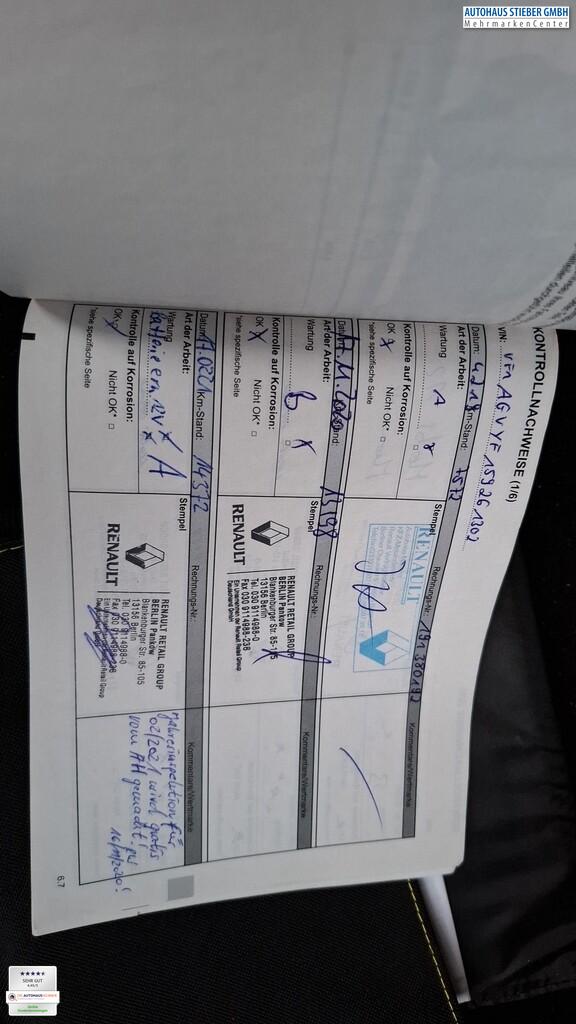 AUTOHAUS STIEBER GMBH
MehrmarkenCenter
KONTROLLNACHWEISE (1/6)
VIN: VF1AGVYF159261302
Datum: 4.2.19 Km-Stand: 7572 Rechnungs-Nr.: 191380192 Kommentare/Wertmarke
Art der Arbeit: Stempel
Wartung A
Kontrolle auf Korrosion:
OK x Nicht OK* □
*siehe spezifische Seite
RENAULT
Datum: 11.2020 Km-Stand: 13198 Rechnungs-Nr.: Kommentare/Wertmarke
Art der Arbeit: Stempel
Wartung B x
Kontrolle auf Korrosion:
OK x Nicht OK* □
*siehe spezifische Seite
RENAULT
RENAULT RETAIL GROUP
BERLIN Pankow
Blankenburger Str. 85-105
13156 Berlin
Tel. 030 9114988-0
Fax 030 9114988-238
Ein Unternehmen der Renault Retail Group
Deutschland GmbH
Datum: 11.02.21 Km-Stand: 14372 Rechnungs-Nr.: Kommentare/Wertmarke
Art der Arbeit: Stempel
Wartung A
Batterie 12V x
Kontrolle auf Korrosion:
OK x Nicht OK* □
*siehe spezifische Seite
RENAULT
RENAULT RETAIL GROUP
BERLIN Pankow
Blankenburger Str. 85-105
13156 Berlin
Tel. 030 9114988-0
Fax 030 9114988-238
Jahresinspektion für
02/2021 wird gratis
vom AH gemacht
16/11/2020!
6.7
SEHR GUT